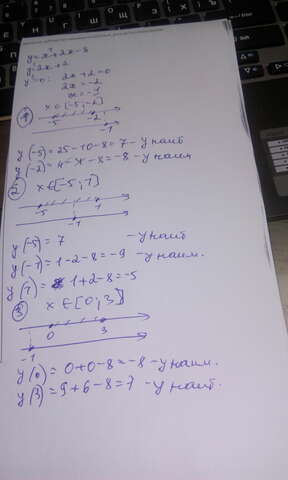 y=x²+2x-8
y'=2x+2
y'=0; 2x+2=0
2x=-2
x=-1
x∈[-5;-2]
①
-5 -2
-1
y(-5)=25-10-8=7 - y наиб
y(-2)=4-4-8=-8 - y наим
② x∈[-5;1]
-5 1
-1
y(-5)=7 - y наиб
y(-1)=1-2-8=-9 - y наим.
y(1)= 1+2-8=-5
③ x∈[0;3]
0 3
-1
y(0)=0+0-8=-8 - y наим.
y(3)=9+6-8=7 - y наиб.